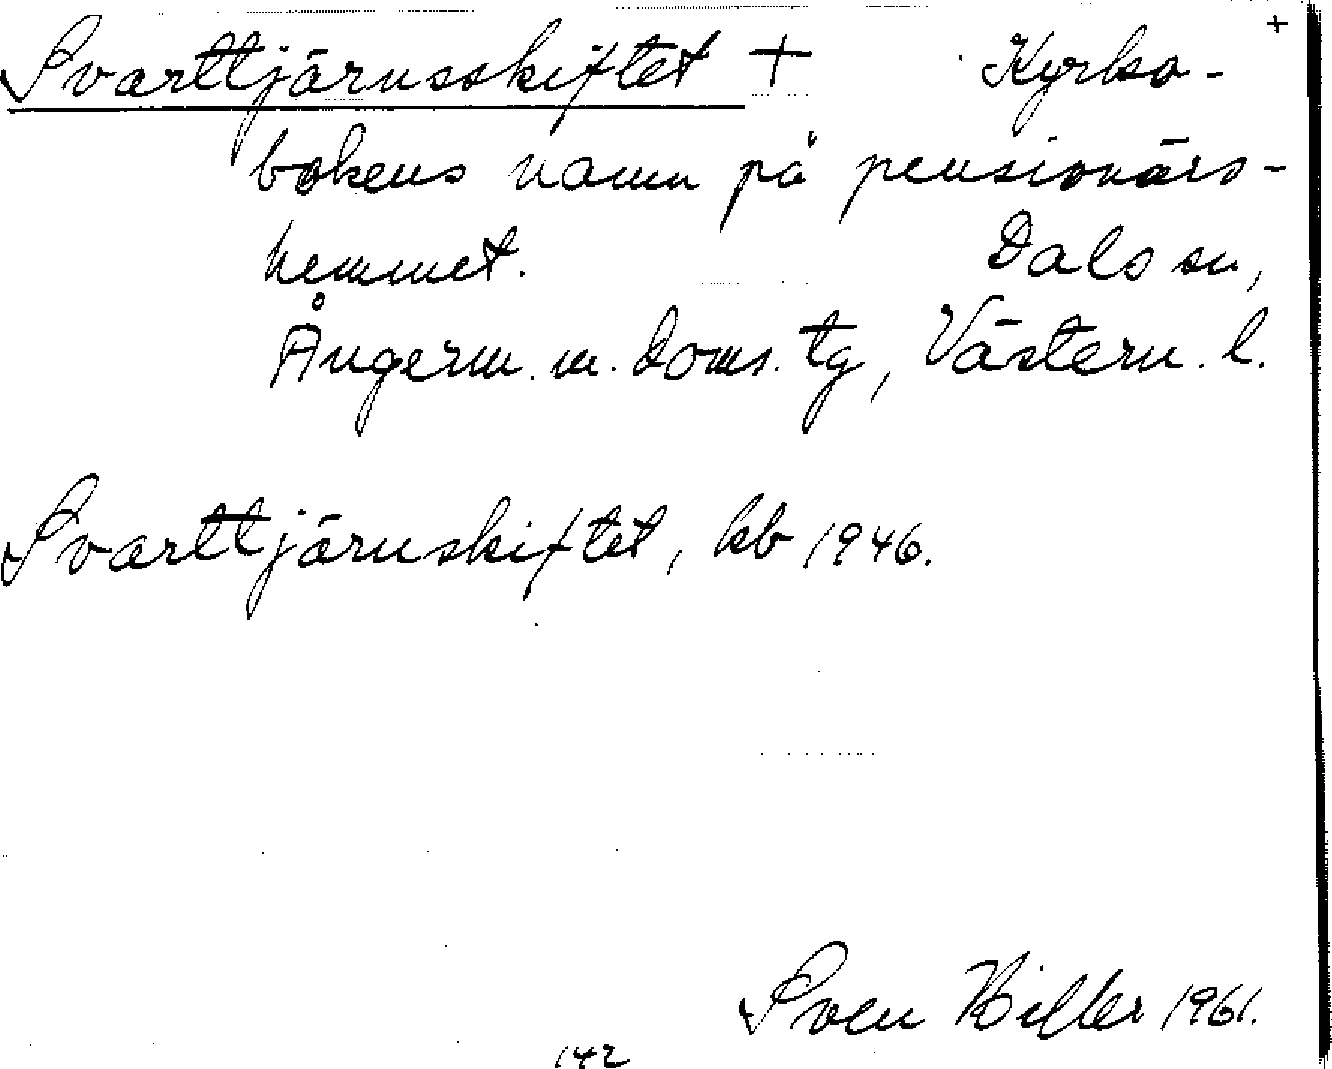 +
Svarttjärnsskiftet + Kyrko-
bokens namn på pensionärs-
hemmet. Dals sn,
Ångerm. m. doms. tg, Västern. l.
Svarttjärnskiftet, kb 1946.
Sven 1961.
142